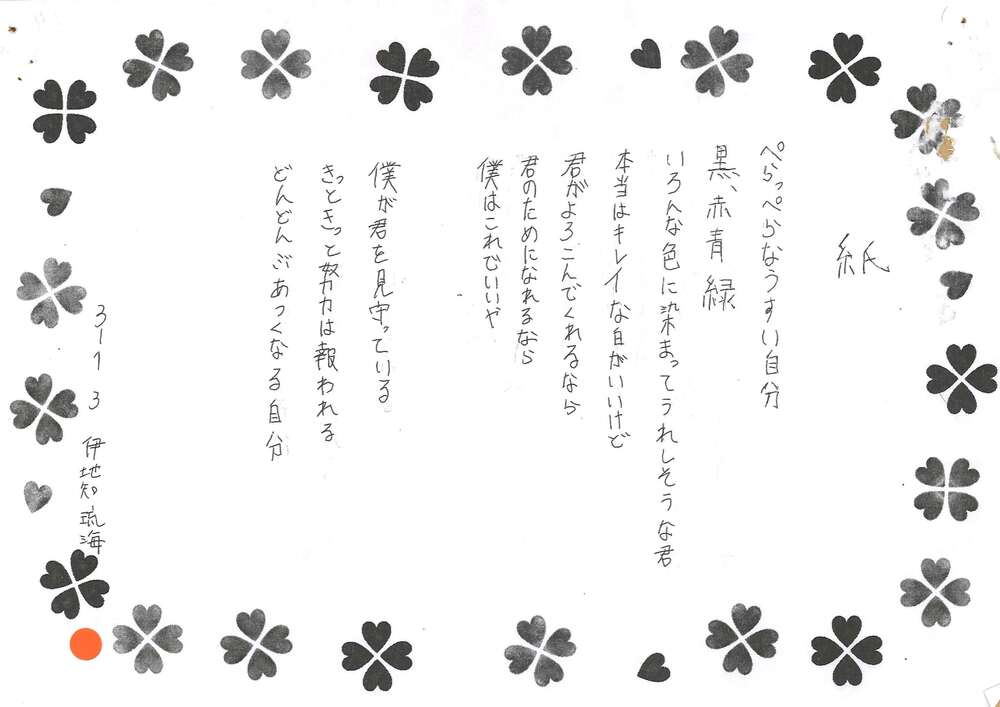 紙
ぺらっぺらなうすい自分
黒、赤青緑
いろんな色に染まってうれしそうな君
本当はキレイな白がいいけど
君がよろこんでくれるなら
君のためになれるなら
僕はこれでいいや
僕が君を見守っている
きっときっと努力は報われる
どんどんぶあつくなる自分
3-1 3 伊地知琉海